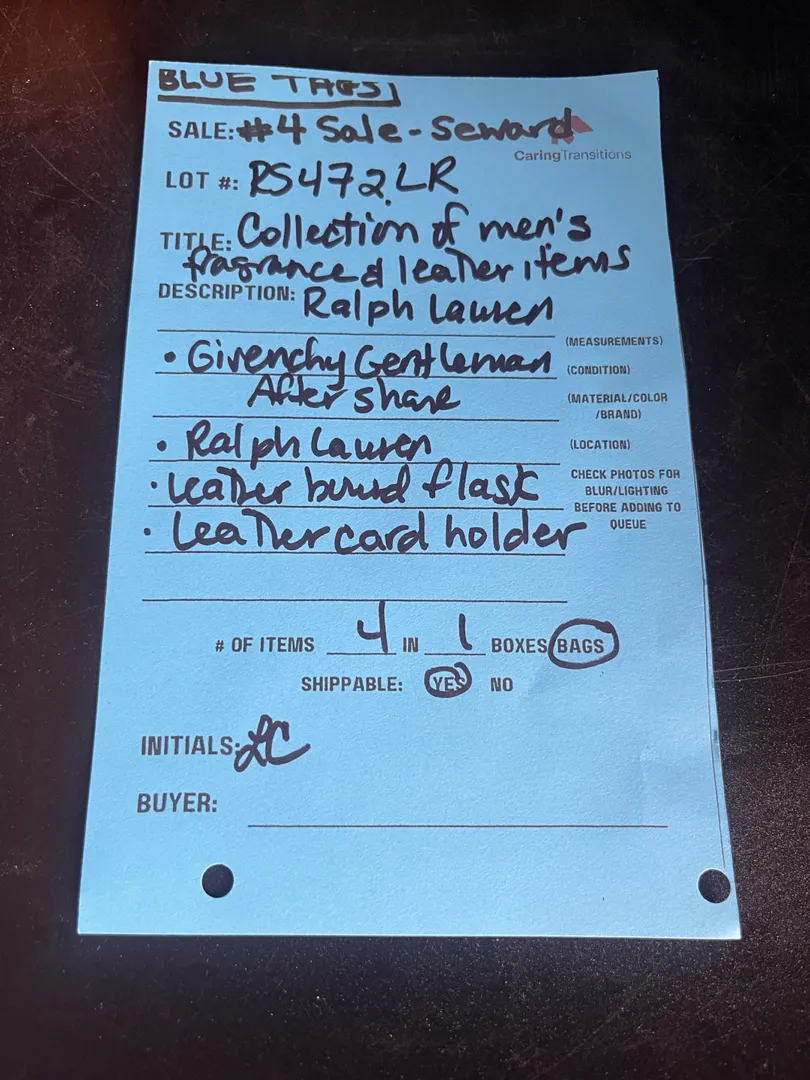 BLUE TAGS
SALE: #4 Sale - Seward
CaringTransitions
LOT #: RS472LR
TITLE: Collection of men's
fragrance & leather items
DESCRIPTION: Ralph Lauren
(MEASUREMENTS)
• Givenchy Gentleman
(CONDITION)
After shave
(MATERIAL/COLOR
/BRAND)
• Ralph Lauren
(LOCATION)
• Leather bound flask
CHECK PHOTOS FOR
BLUR/LIGHTING
BEFORE ADDING TO
QUEUE
• Leather card holder
# OF ITEMS 4 IN 1 BOXES/BAGS
SHIPPABLE: YES NO
INITIALS: LC
BUYER: